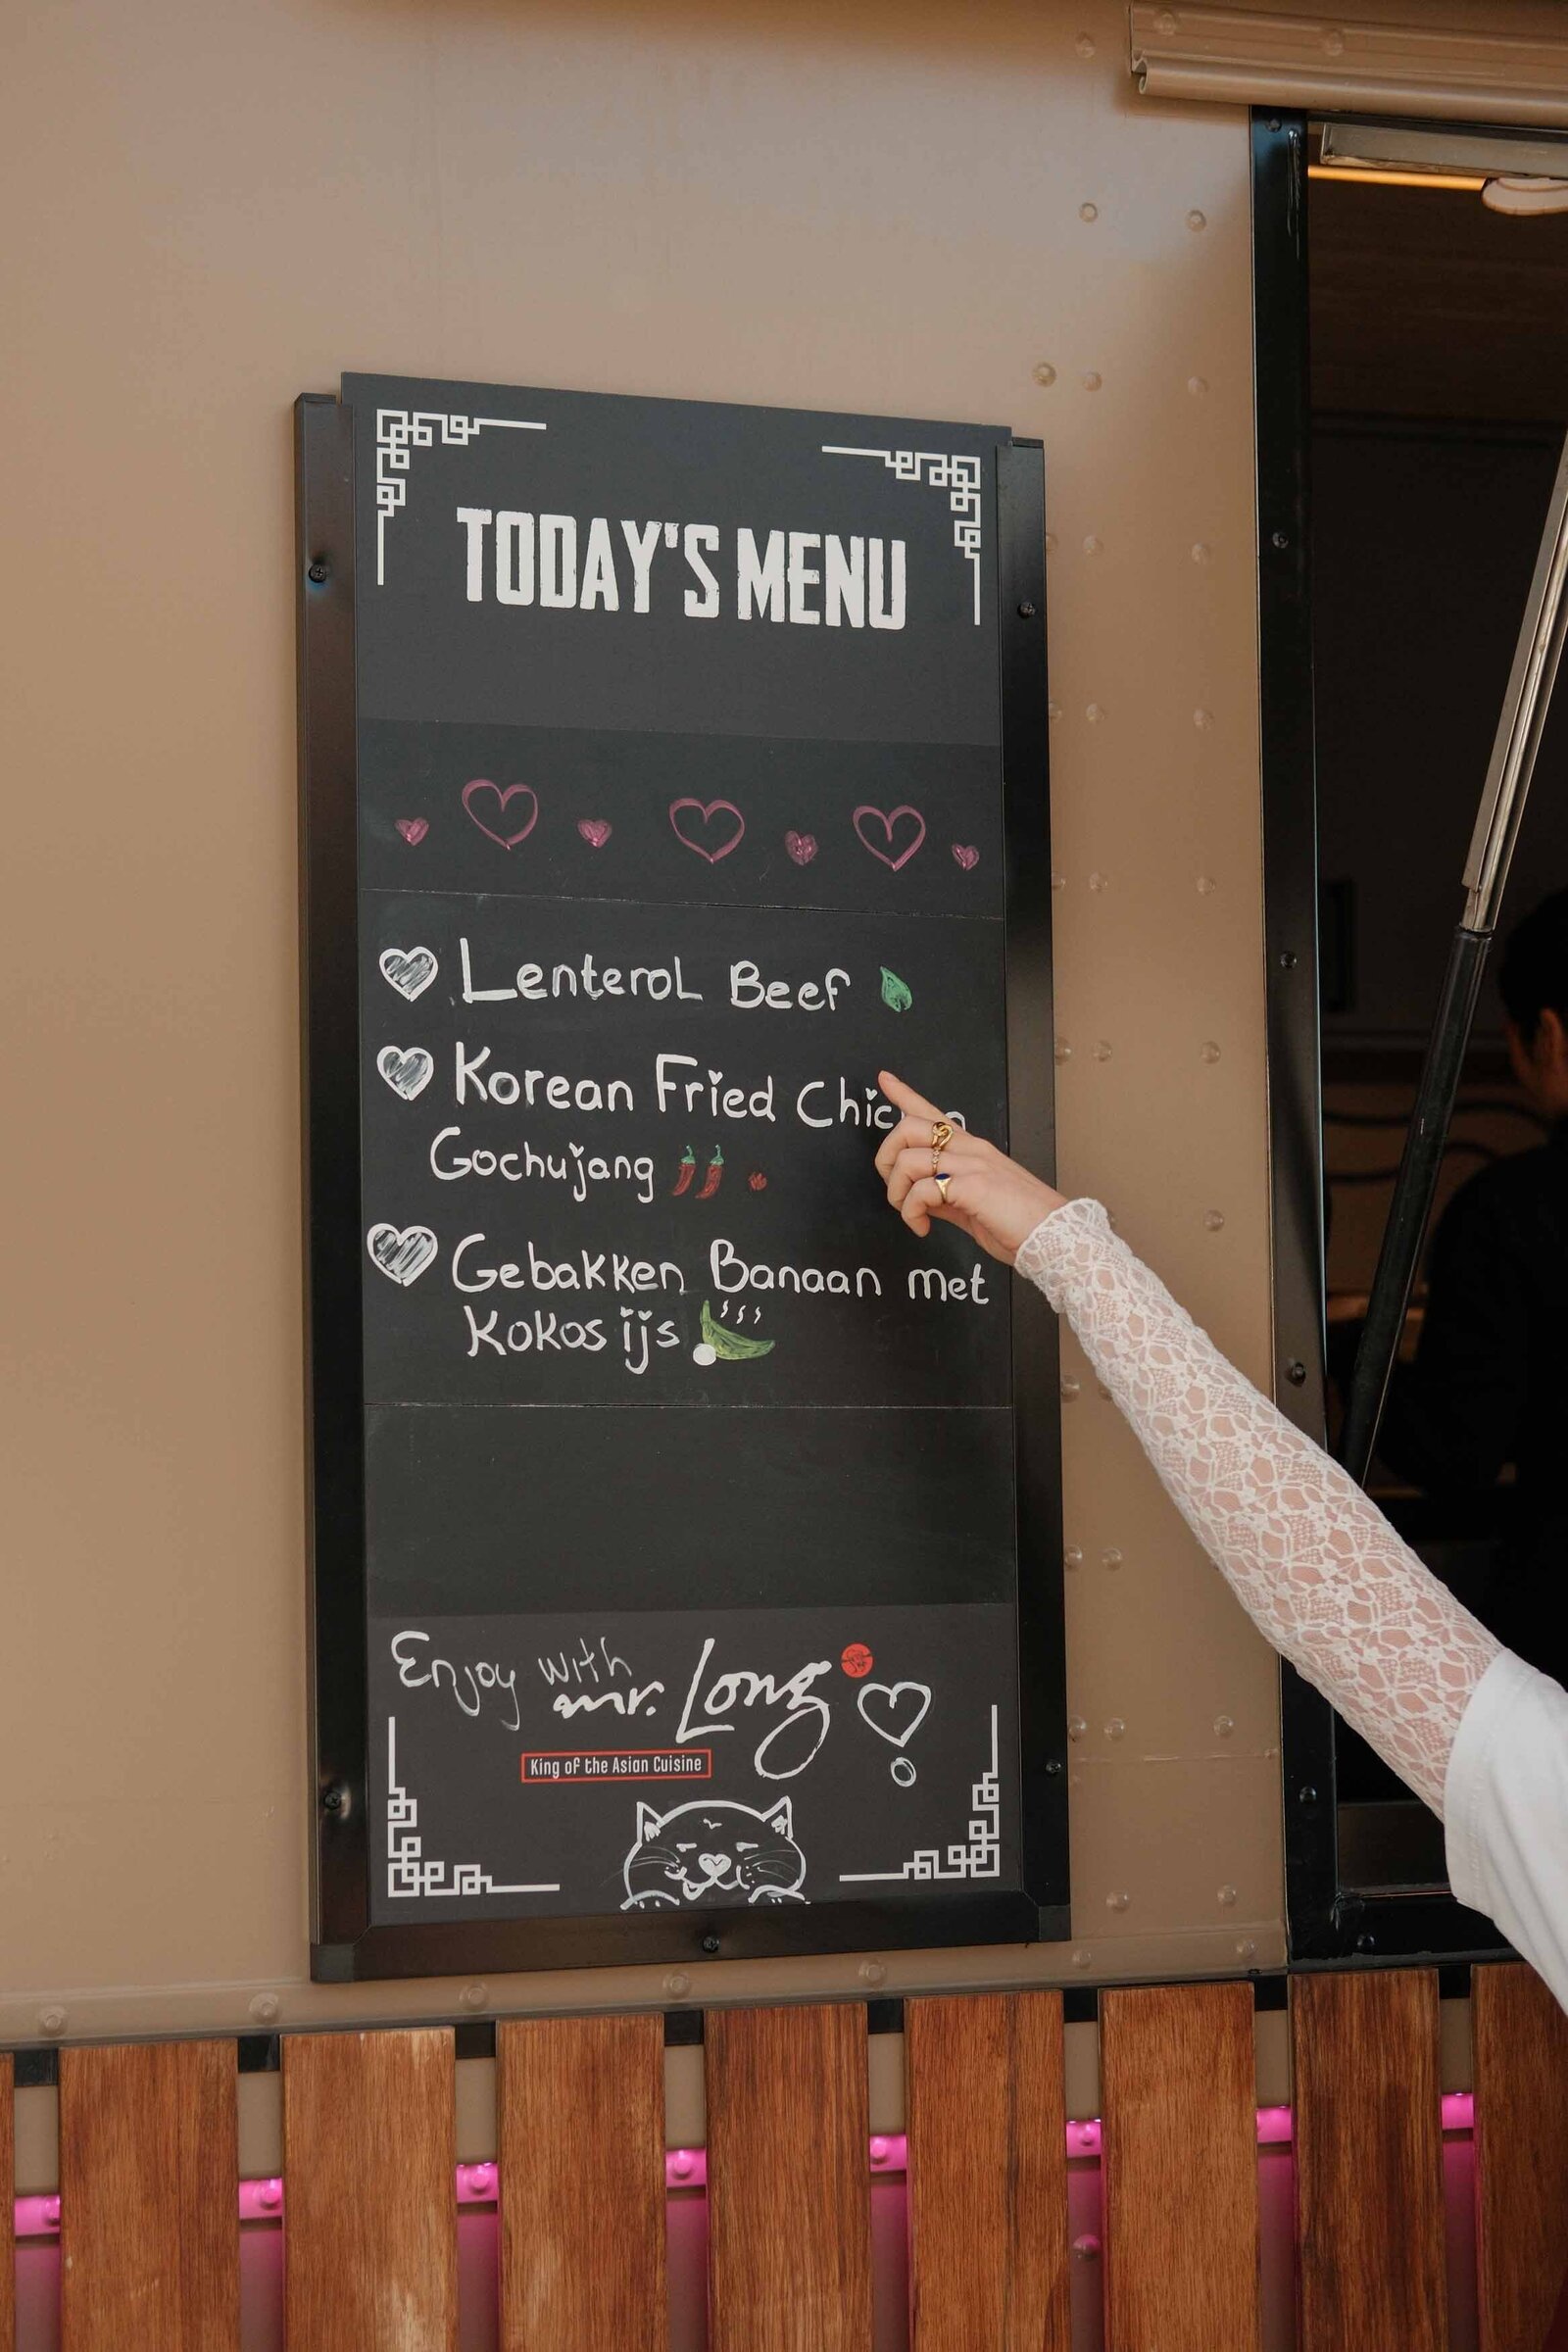 TODAY'S MENU
Lenterol Beef
Korean Fried
Gochujang
Gebakken Banaan met
Kokos ijs
Enjoy with
mr. Long
King of the Asian Cuisine